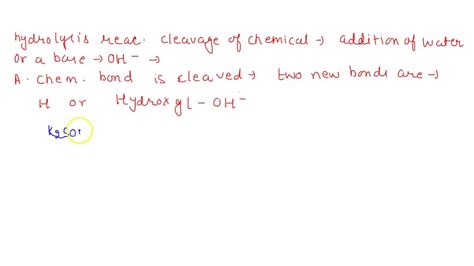 hydrolysis reac. cleavage of chemical → addition of water
or a base → OH⁻ →
A. chem. bond is cleaved → two new bonds are →
H or Hydroxyl - OH⁻
K₂CO